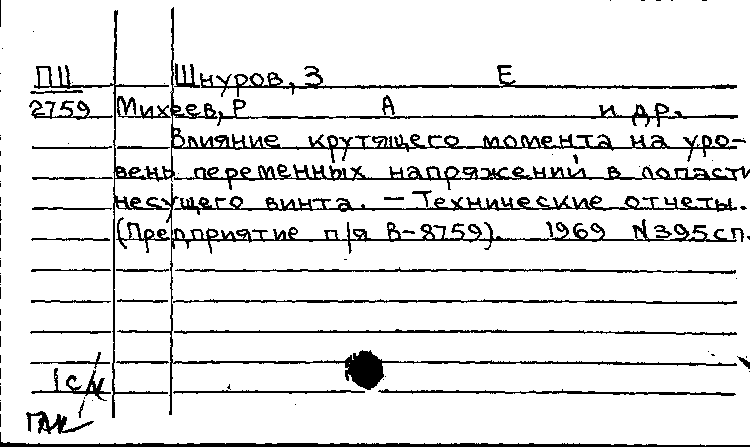 ПШ Шнуров, З Е
2759 Михеев, Р А и др.
Влияние крутящего момента на уро-
вень переменных напряжений в лопасти
несущего винта. — Технические отчеты.
(Предприятие п/я В-8759). 1969 N395сп.
1с/ч